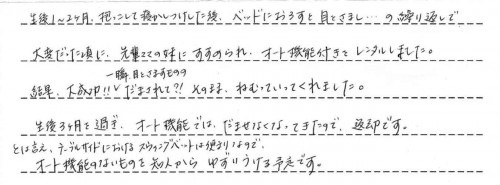 生後1~2ヶ月、抱っこして寝かしつけした後、ベッドにおろすと目をさまし…の繰り返しで
大変だった頃に、先輩ママの妹にすすめられ、オート機能付きをレンタルしました。
一瞬、目をさますものの
結果、大成功!!だまされて?!そのまま、ねむっていってくれました。
生後3ヶ月を過ぎ、オート機能では、だませなくなってきたので、返却です。
とは言え、テーブルサイドにおけるスウィングベットは便利なので、
オート機能のないものを知人からゆずりうける予定です。